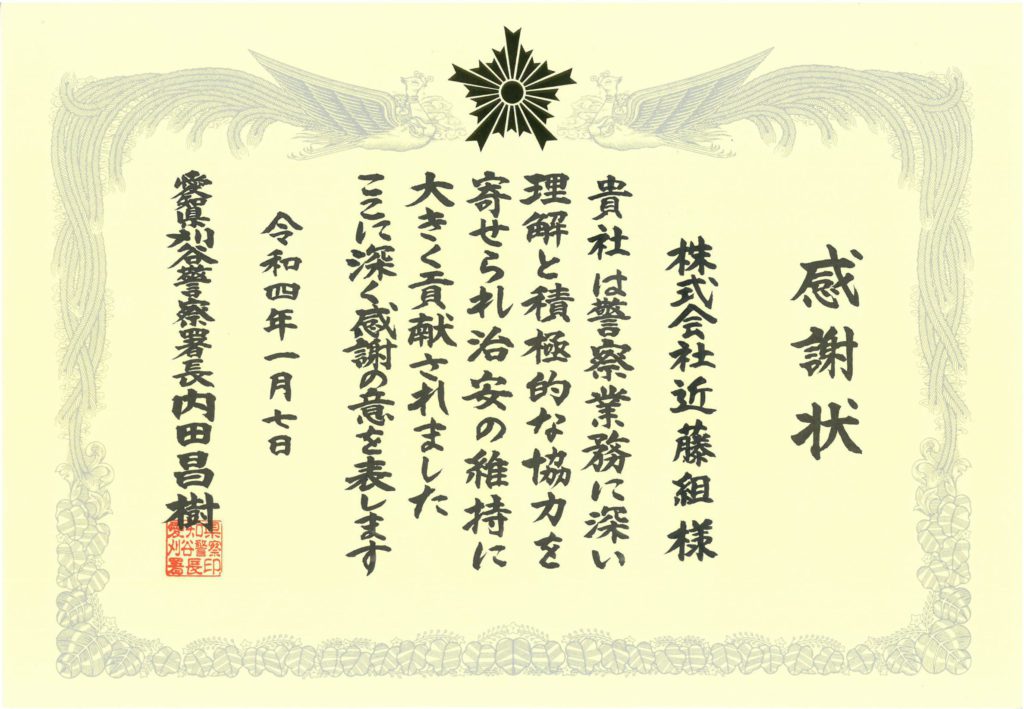 感謝状
株式会社近藤組様
貴社は警察業務に深い
理解と積極的な協力を
寄せられ治安の維持に
大きく貢献されました
ここに深く感謝の意を表します
令和四年一月七日
愛知県刈谷警察署長内田昌樹
県察印
知谷警長
愛刈署